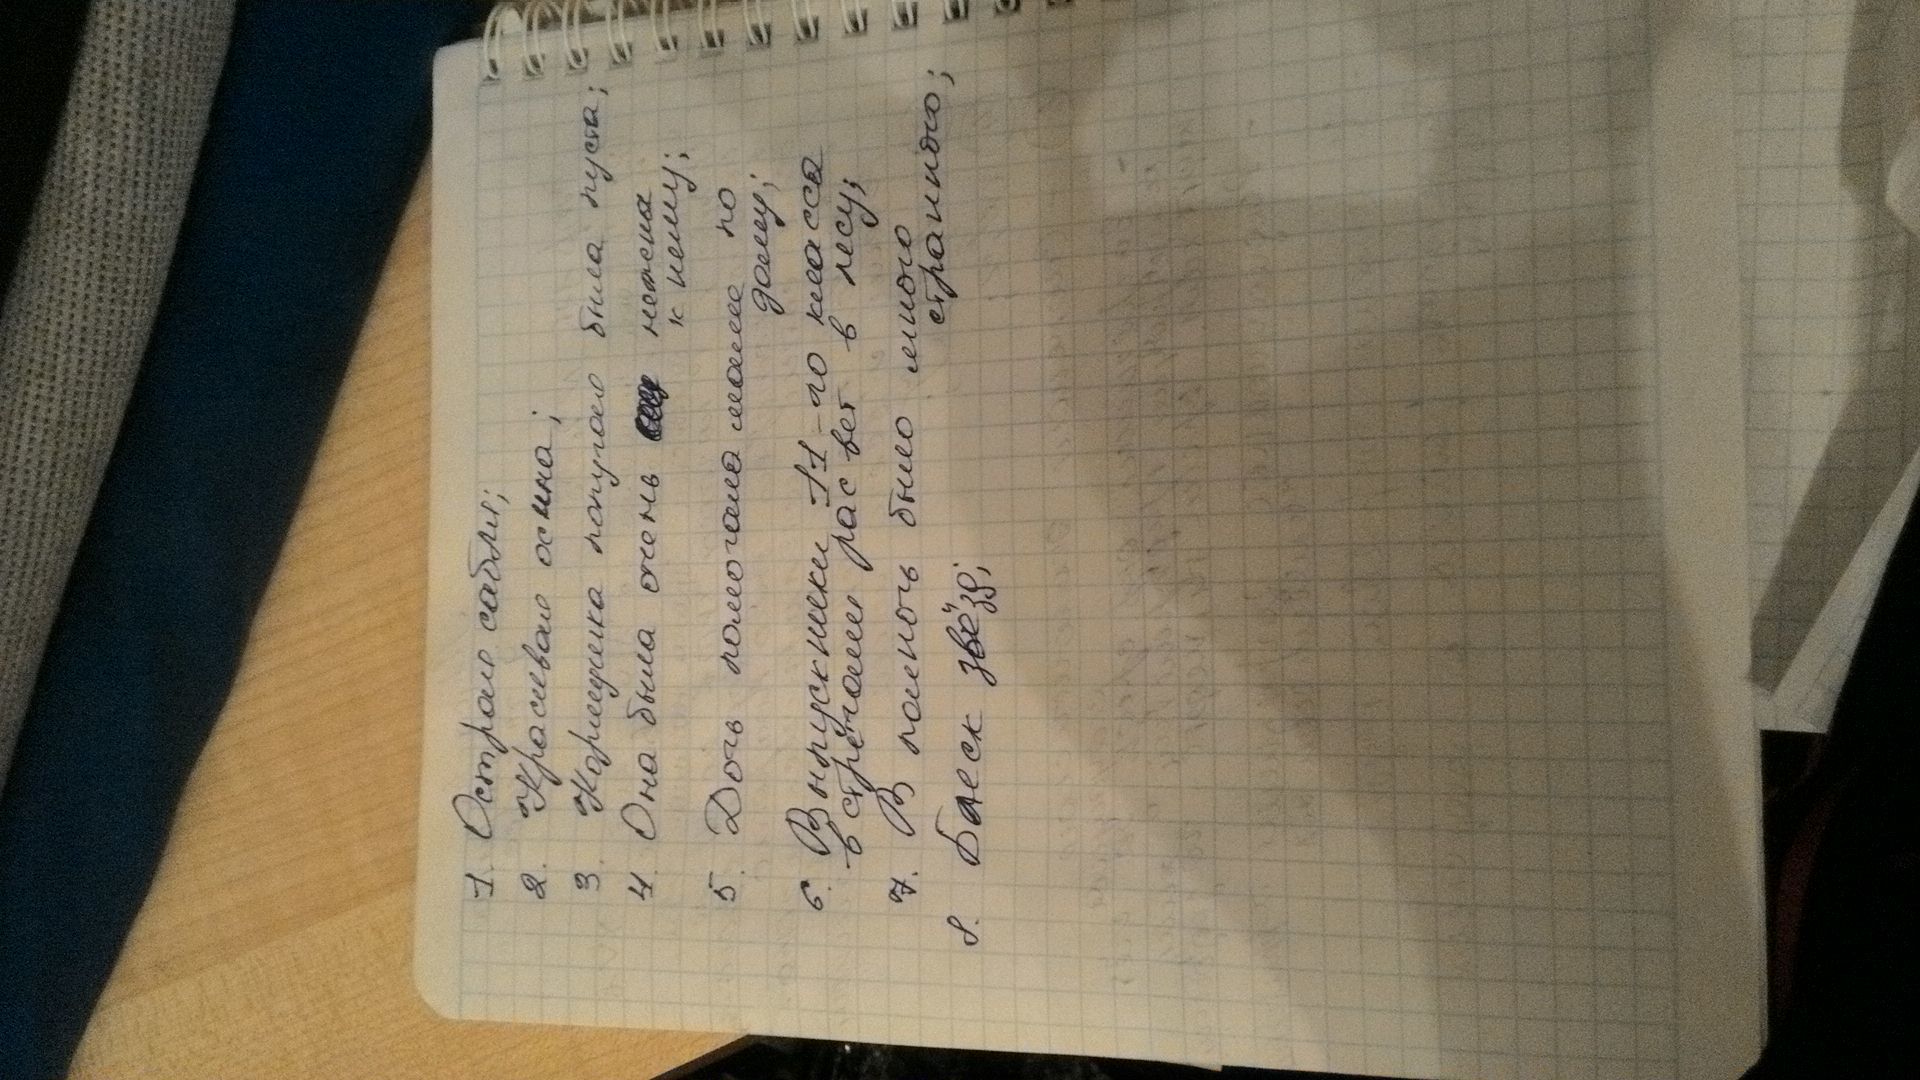 1. Острая сабля;
2. Красивая осина;
3. Кормушка попугая была пуста;
4. Она была очень нежна
к нему;
5. Дочь помогала маме по
дому;
6. Выпускники 11-го класса
встречали рассвет в лесу;
7. В полночь было много
странного;
8. Блеск звёзд;